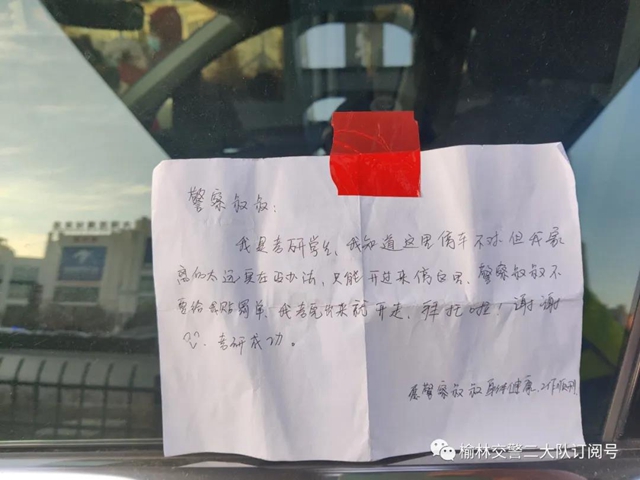 警察叔叔：
我是考研学生，我知道这里停车不对但我家
离的太远实在没办法，只能开过来停这里，警察叔叔不
要给我贴罚单，我考完出来就开走，拜托啦！谢谢
考研成功。
愿警察叔叔身体健康、工作顺利
榆林交警二大队订阅号